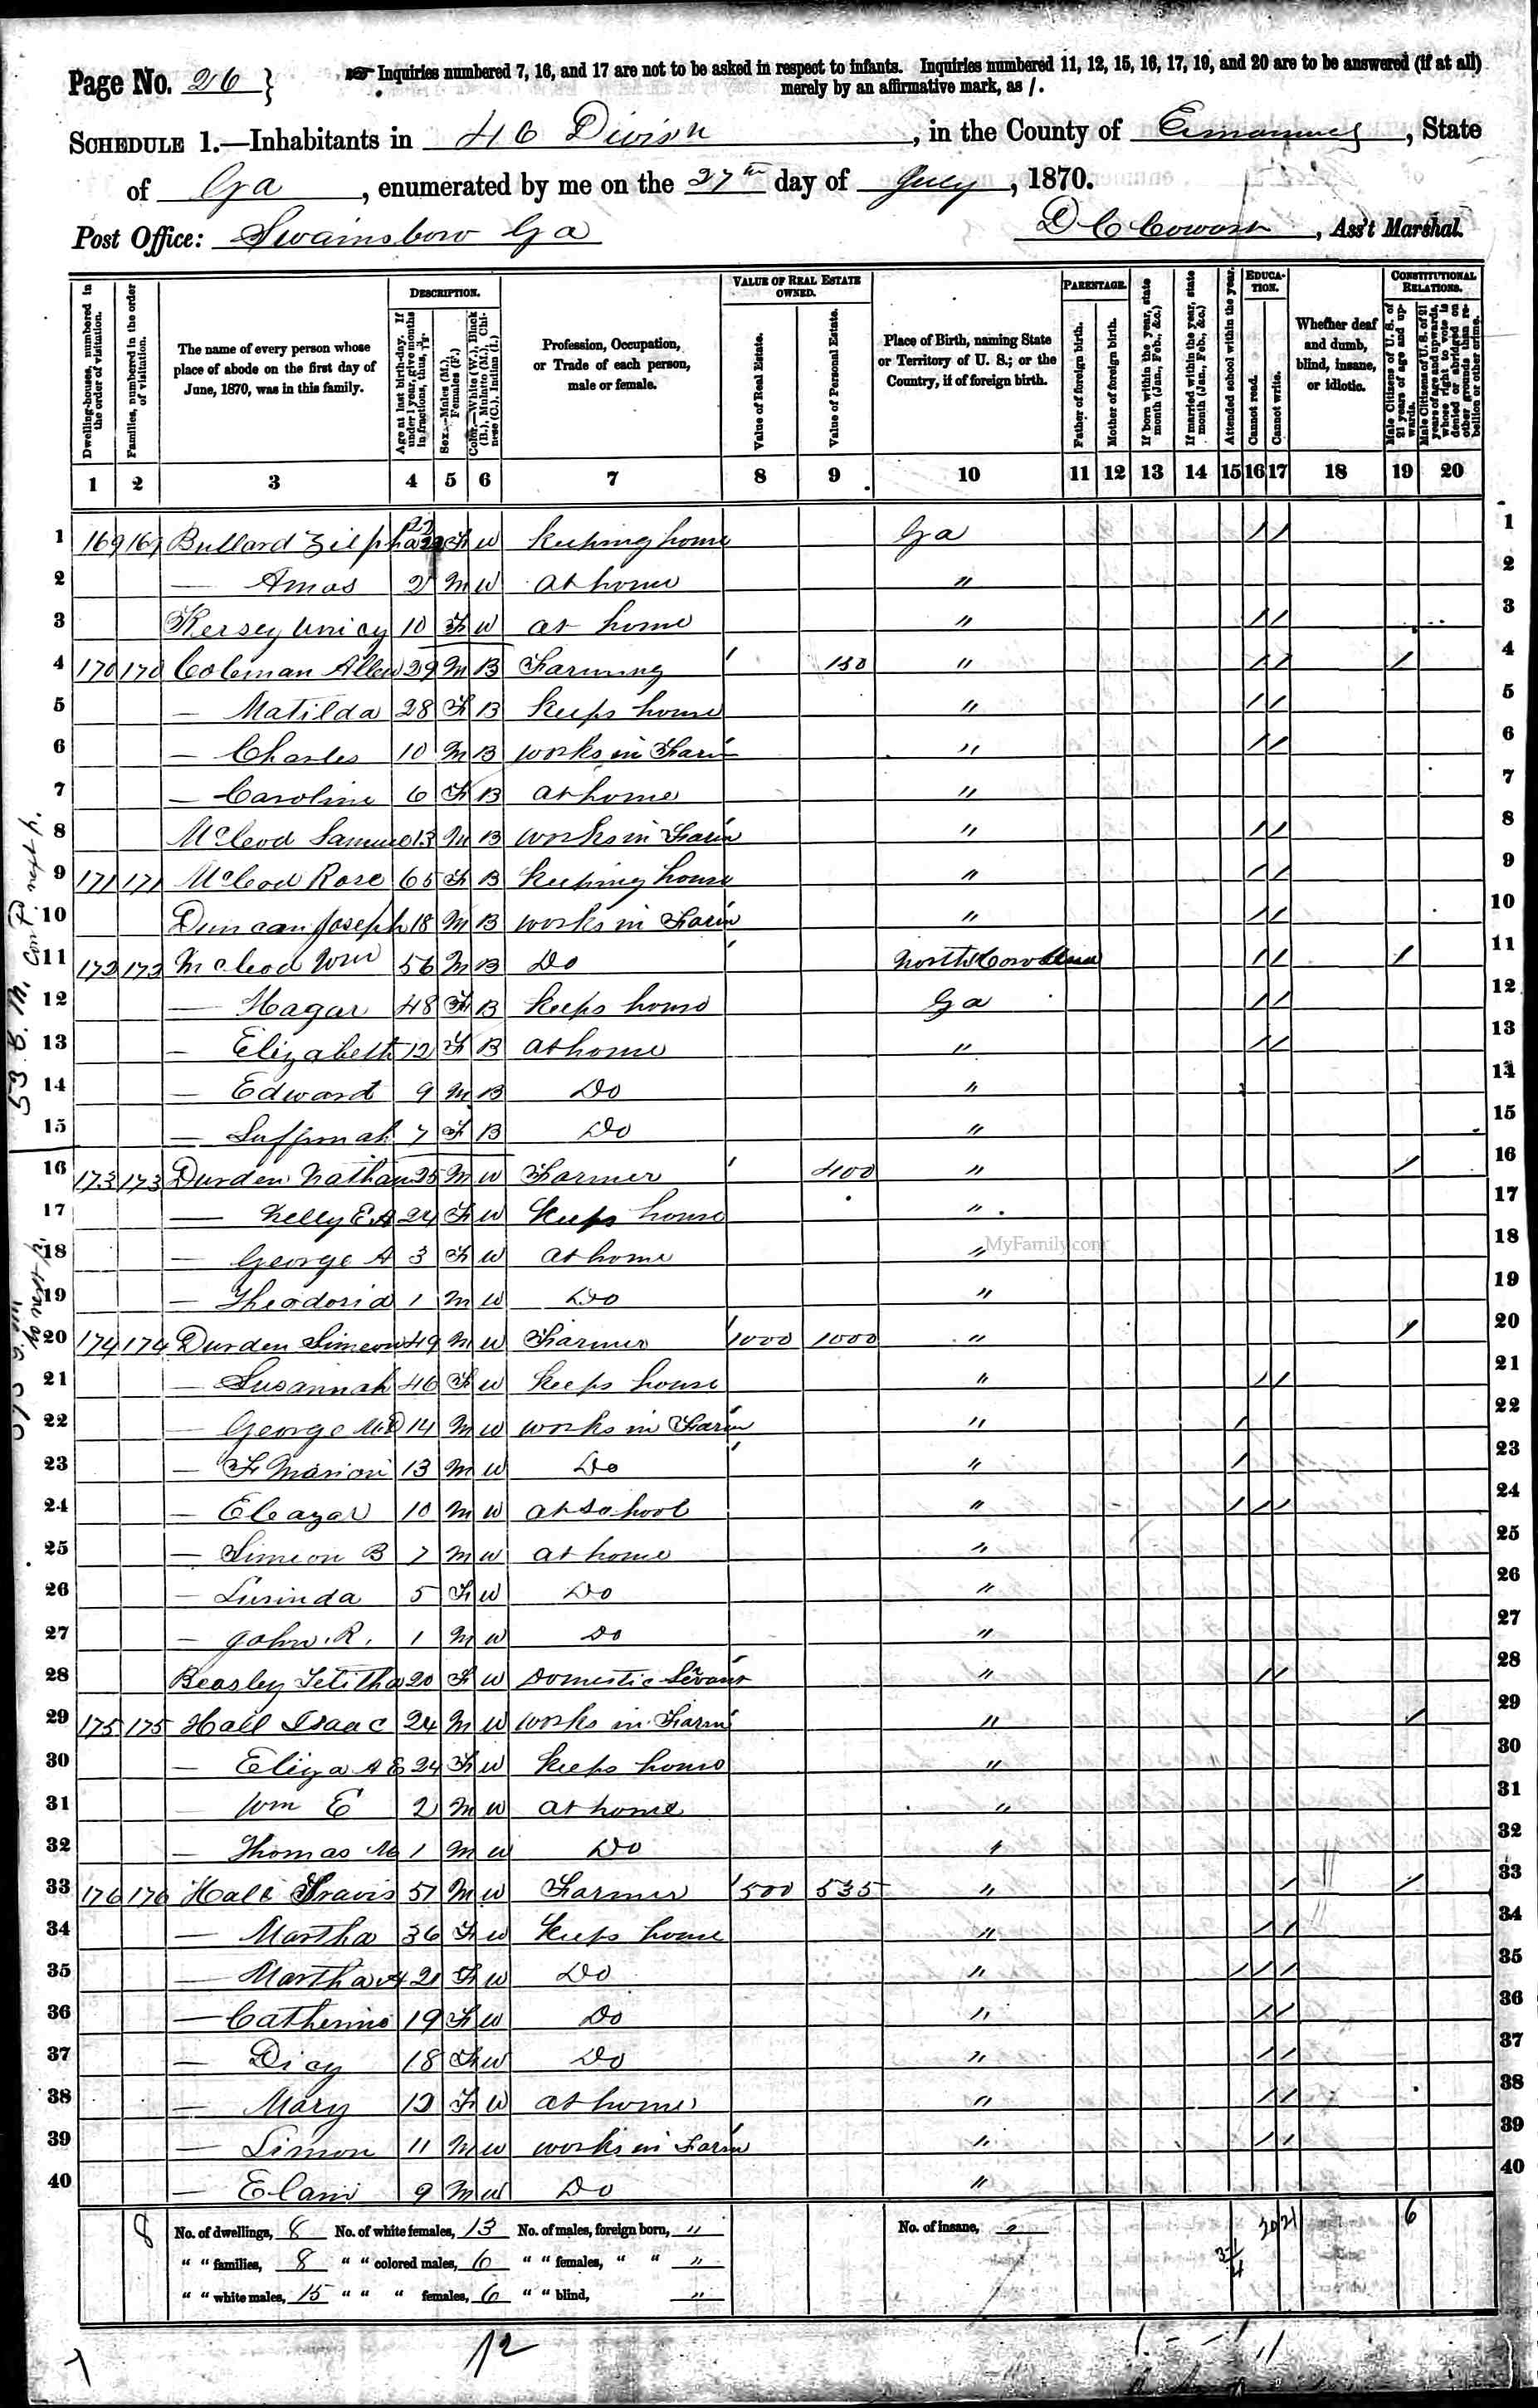 Page No. 26 } ☞ Inquiries numbered 7, 16, and 17 are not to be asked in respect to infants. Inquiries numbered 11, 12, 15, 16, 17, 19, and 20 are to be answered (if at all)
merely by an affirmative mark, as /.
SCHEDULE 1.—Inhabitants in 46 Divisn, in the County of Emanuel, State
of Ga, enumerated by me on the 27th day of July, 1870.
Post Office: Swainsboro Ga D C Cowart, Ass't Marshal.
Dwelling-houses, numbered in the order of visitation.
Families, numbered in the order of visitation.
The name of every person whose place of abode on the first day of June, 1870, was in this family.
DESCRIPTION.
Age at last birth-day. If under 1 year, give months in fractions, thus,
Sex.—Males (M.), Females (F.)
Color.—White (W.), Black (B.), Mulatto (M.), Chinese (C.), Indian (I.)
Profession, Occupation, or Trade of each person, male or female.
VALUE OF REAL ESTATE OWNED.
Value of Real Estate.
Value of Personal Estate.
Place of Birth, naming State or Territory of U. S.; or the Country, if of foreign birth.
PARENTAGE.
Father of foreign birth.
Mother of foreign birth.
If born within the year, state month (Jan., Feb., &c.)
If married within the year, state month (Jan., Feb., &c.)
Attended school within the year.
EDUCATION.
Cannot read.
Cannot write.
Whether deaf and dumb, blind, insane, or idiotic.
CONSTITUTIONAL RELATIONS.
Male Citizens of U. S. of 21 years of age and upwards.
Male Citizens of U. S. of 21 years of age and upwards, whose right to vote is denied or abridged on other grounds than rebellion or other crime.
1 2 3 4 5 6 7 8 9 10 11 12 13 14 15 16 17 18 19 20
1 169 169 Bullard Zilpha 22 F W Keeping house Ga / / 1
2 — Amos 2 M W at home " 2
3 Kersey Unicy 10 F W at home " / / 3
4 170 170 Coleman Allen 29 M B Farming 150 " / / / 4
5 — Matilda 28 F B Keeps house " / / 5
6 — Charles 10 M B works in Farm " / / 6
7 — Caroline 6 F B at home " 7
8 McLeod Samuel 13 M B works in Farm " / / 8
9 171 171 McLeod Rose 65 F B Keeping house " / / 9
10 Duncan Joseph 18 M B works in Farm " / / 10
11 172 172 McLeod Wm 56 M B Do North Carolina / / / 11
12 — Hagar 48 F B Keeps house Ga / / 12
13 — Elizabeth 12 F B at home " / / 13
14 — Edward 9 M B Do " 14
15 — 7 F B Do " 15
16 173 173 Durden Nathan 25 M W Farmer 400 " / 16
17 — Nelly E A 24 F W Keeps house " 17
18 — George A 3 F W at home " 18
19 — Theodosia 1 M W Do " 19
20 174 174 Durden Simeon 49 M W Farmer 1000 1000 " / 20
21 — Susannah 46 F W Keeps house " / / 21
22 — George 14 M W works in Farm " / 22
23 — F Marion 13 M W Do " / 23
24 — Eleazar 10 M W at school " / / / 24
25 — Simeon B 7 M W at home " 25
26 — Lurinda 5 F W Do " 26
27 — John R. 1 M W Do " 27
28 Beasley Telitha 20 F W Domestic Servant " / / 28
29 175 175 Hall Isaac 24 M W works in Farm " / 29
30 — Eliza A E 24 F W Keeps house " 30
31 — Wm E 2 M W at home " 31
32 — Thomas M 1 M W Do " 32
33 176 176 Hall Travis 51 M W Farmer 500 535 " / / 33
34 — Martha 36 F W Keeps house " / / 34
35 — Martha A 21 F W Do " / / / 35
36 — Catherine 19 F W Do " / / 36
37 — Dicy 18 F W Do " / / 37
38 — Mary 12 F W at home " / / 38
39 — Simon 11 M W works in Farm " / / 39
40 — Elam 9 M W Do " 40
8 No. of dwellings, 8 No. of white females, 13 No. of males, foreign born, " No. of insane, " 20 21 6
" " families, 8 " " colored males, 6 " " females, " " "
" " white males, 15 " " " females, 6 " " blind, "
12
53 G. M. Con't next p.
to next p.
MyFamily.com